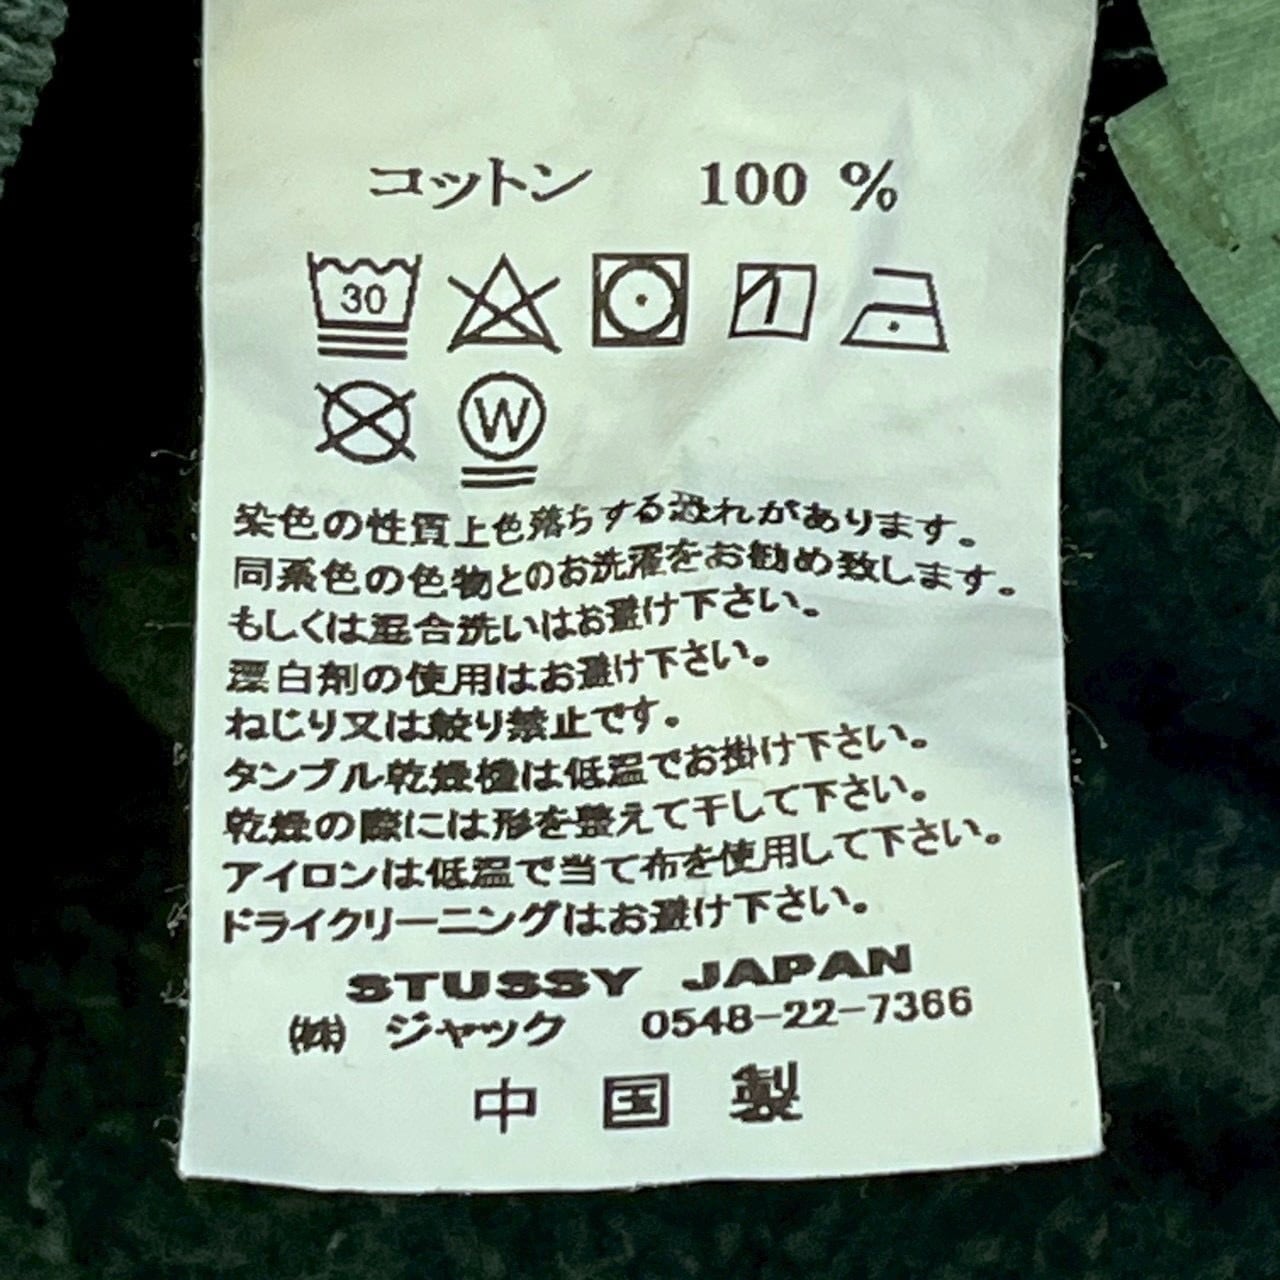 コットン 100 %
30
W
染色の性質上色落ちする恐れがあります。
同系色の色物とのお洗濯をお勧め致します。
もしくは混合洗いはお避け下さい。
漂白剤の使用はお避け下さい。
ねじり又は絞り禁止です。
タンブル乾燥機は低温でお掛け下さい。
乾燥の際には形を整えて干して下さい。
アイロンは低温で当て布を使用して下さい。
ドライクリーニングはお避け下さい。
STUSSY JAPAN
㈱ ジャック 0548-22-7366
中国製